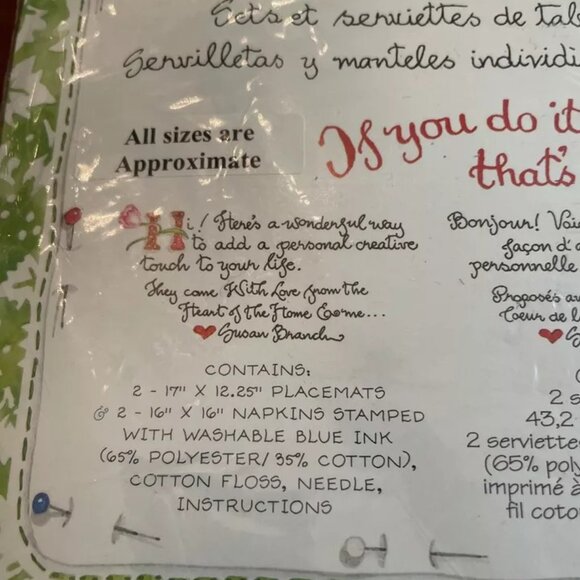 Sets et serviettes de tab
Servilletas y manteles individ
All sizes are
Approximate
If you do it
that's
Hi! Here's a wonderful way
to add a personal creative
touch to your life.
They come With Love from the
Heart of the Home to me...
Susan Branch
CONTAINS:
2 - 17" X 12.25" PLACEMATS
& 2 - 16" X 16" NAPKINS STAMPED
WITH WASHABLE BLUE INK
(65% POLYESTER/ 35% COTTON),
COTTON FLOSS, NEEDLE,
INSTRUCTIONS
Bonjour! Voi
façon d'a
personnelle
Proposés av
Coeur de l
S
2 s
43,2
2 serviettes
(65% poly
imprimé à
fil coto